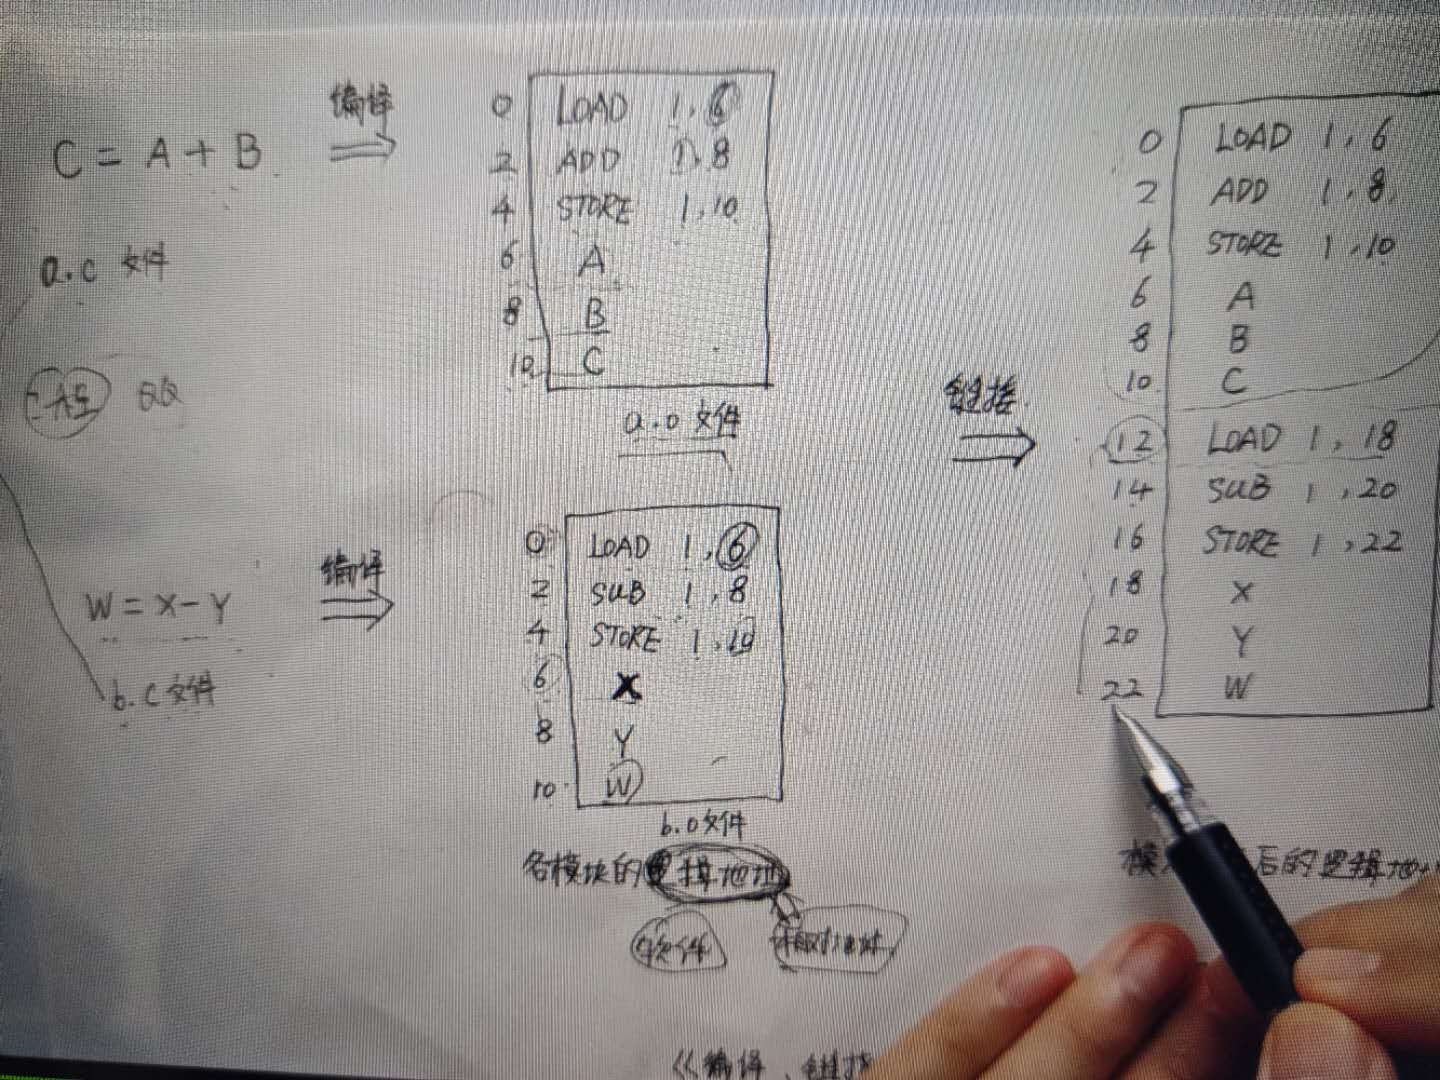 C = A + B
a.c 文件
QQ
W = X - Y
b.c 文件
编译
0 LOAD 1, 6
2 ADD 1, 8
4 STORE 1, 10
6 A
8 B
10 C
a.o 文件
编译
0 LOAD 1, 6
2 SUB 1, 8
4 STORE 1, 10
6 X
8 Y
10 W
b.o 文件
各模块的逻辑地址
软件
相对地址
链接
0 LOAD 1, 6
2 ADD 1, 8
4 STORE 1, 10
6 A
8 B
10 C
12 LOAD 1, 18
14 SUB 1, 20
16 STORE 1, 22
18 X
20 Y
22 W
后的逻辑地
《编译、链接